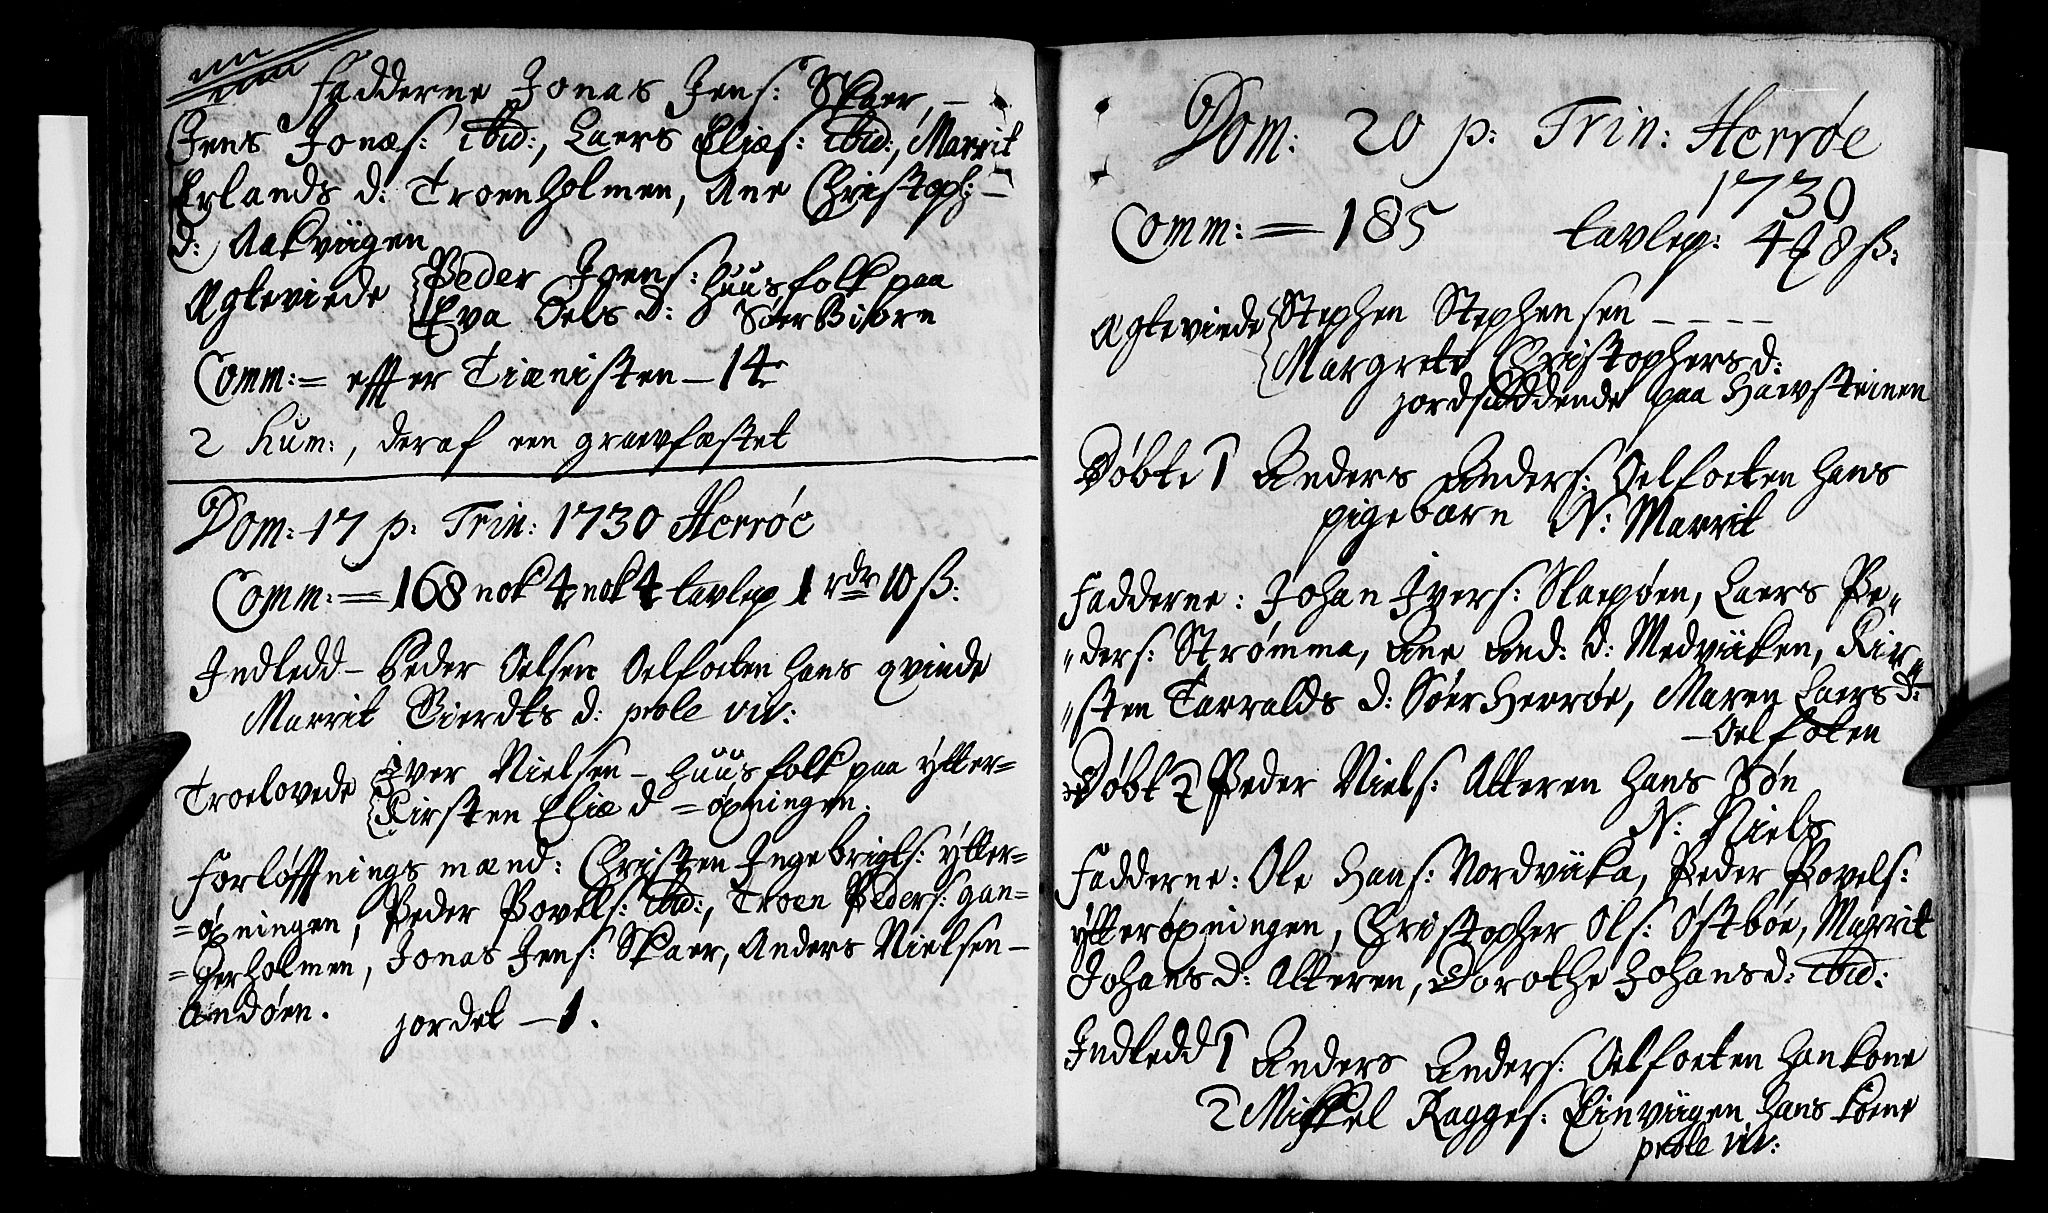 Fadderne Jonas Jens: Skaer, –
Jens Jonæs: ibid:, Laers Eliæs: ibid:, Marrit
Erlands d: Troenholmen, Ane Christoph: –
d: Aakviigen
Ægteviede Peder Joens: huusfolk paa
Eva Oels d: Søer Biorn
Comm: = effter Tiænisten – 14
2 hum:, deraf een graevfæstet
Dom: 17 p: Trin: 1730 Herrøe
Comm: = 168 nok 4 nok 4 tavlep 1 rdr 10 ß:
Indledd – Peder Oelsen Oelfoeten hans qvinde
Marrit Gierdts d: prole viv:
Troelovede Iver Nielsen – huusfolk paa ytter=
Kirsten Eliæ d =øpningen.
Forløffnings mænd: Christen Ingebrigts: ytter=
=øpningen, Peder Povels: ibid:, Troen Peders: gan=
=gerholmen, Jonas Jens: Skaer, Anders Nielsen –
andøen. jordet – 1.
Dom: 20 p: Trin: Herrøe
1730
Comm: = 185 tavlep: 4 ß:
Ægteviede Stephen Stephensen – – – –
Margrete Christophers d:
jordsiddende paa Haevsteinen
Døbte 1 Anders Anders: Oelfoeten hans
pigebarn N: Marrit
Fadderne: Johan Ivers: Slaepøen, Laers Pe„
„ders: Strømma, Ane And: d: Medviiken, Kir„
„sten Tarralds d: Søer Herrøe, Maren Laers d:
– Oelfoten
Døbt 2 Peder Niels: Alteren hans Søn
N: Niels
Fadderne: Ole Hans: Nordviika, Peder Povels:
ytterøpningen, Christopher Ols: Østbøe, Marrit
Johans d: Alteren, Dorothe Johans d: ibid:
Indledd 1 Anders Anders: Oelfoeten han kone
2 Mikkel Ragges: Einviigen hans koene
prole viv: